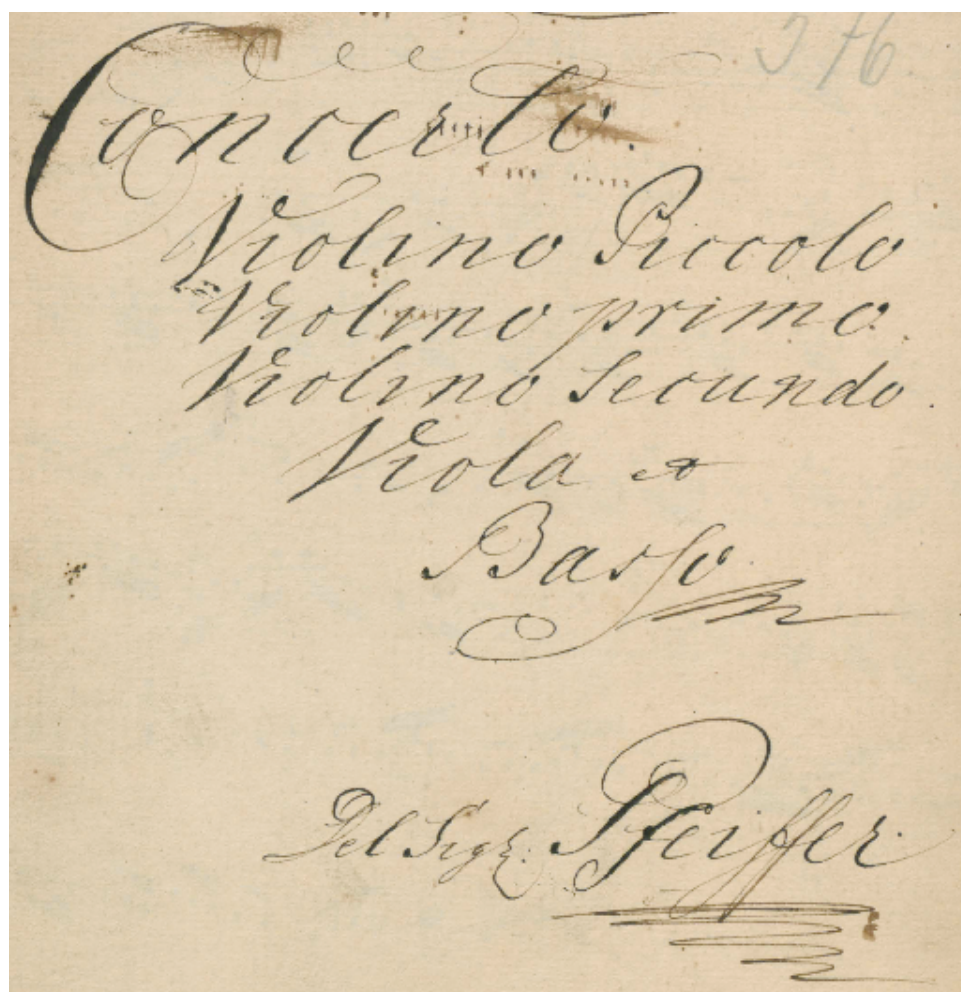 376
Concerto.
Violino Piccolo
Violino primo.
Violino Secundo.
Viola et
Basso.
Del Sigr: Pfeiffer.